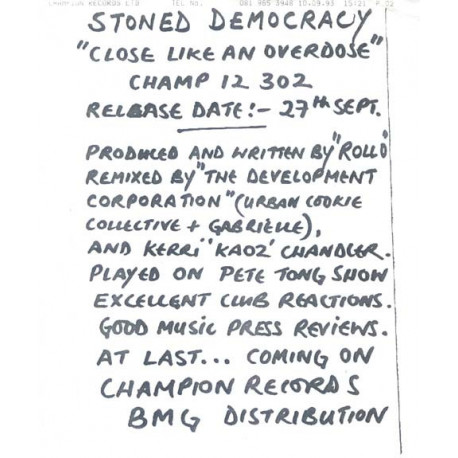 CHAMPION RECORDS LTD TEL No. 081 965 3948 10.09.93 15:21 P.02
STONED DEMOCRACY
"CLOSE LIKE AN OVERDOSE"
CHAMP 12 302
RELEASE DATE:- 27TH SEPT.
PRODUCED AND WRITTEN BY "ROLLO"
REMIXED BY "THE DEVELOPMENT
CORPORATION" (URBAN COOKIE
COLLECTIVE + GABRIELLE),
AND KERRI "KAOZ" CHANDLER.
PLAYED ON PETE TONG SHOW
EXCELLENT CLUB REACTIONS.
GOOD MUSIC PRESS REVIEWS.
AT LAST... COMING ON
CHAMPION RECORDS
BMG DISTRIBUTION